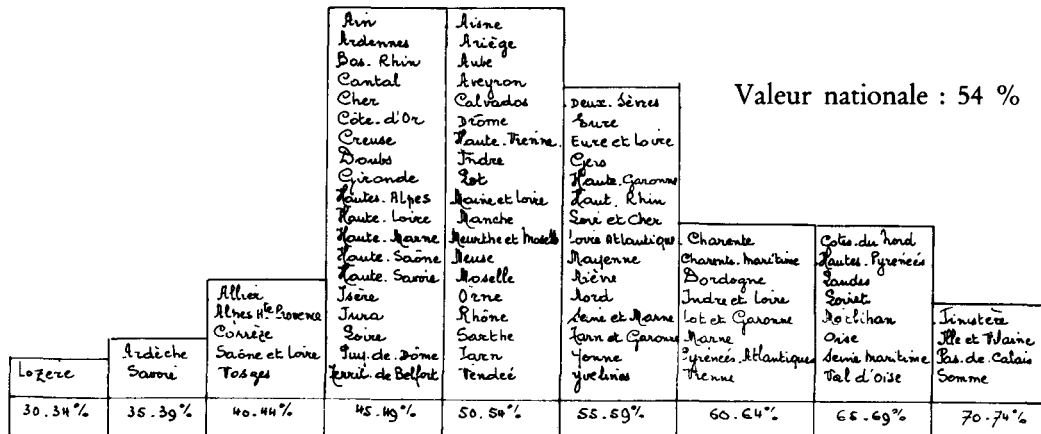 Valeur nationale : 54 %
Lozère
30.34%
Ardèche
Savoie
35.39%
Allier
Alpes Hte Provence
Corrèze
Saône et Loire
Vosges
40.44%
Ain
Ardennes
Bas. Rhin
Cantal
Cher
Côte. d'Or
Creuse
Doubs
Gironde
Hautes. Alpes
Haute. Loire
Haute. Marne
Haute. Saône
Haute. Savoie
Isère
Jura
Loire
Puy. de. Dôme
Territ. de Belfort
45.49%
Aisne
Ariège
Aube
Aveyron
Calvados
Drôme
Haute. Vienne
Indre
Lot
Maine et Loire
Manche
Meurthe et Moselle
Meuse
Moselle
Orne
Rhône
Sarthe
Tarn
Vendeé
50.54%
Deux. Sèvres
Eure
Eure et Loire
Gers
Haute. Garonne
Haut. Rhin
Loir et Cher
Loire Atlantique
Mayenne
Nièvre
Nord
Seine et Marne
Tarn et Garonne
Yonne
Yvelines
55.59%
Charente
Charente. Maritime
Dordogne
Indre et Loire
Lot et Garonne
Marne
Pyrénées. Atlantiques
Vienne
60.64%
Cotes. du Nord
Hautes. Pyrénées
Landes
Loiret
Morbihan
Oise
Seine Maritime
Val d'Oise
65.69%
Finistère
Ille et Vilaine
Pas. de. Calais
Somme
70.74%